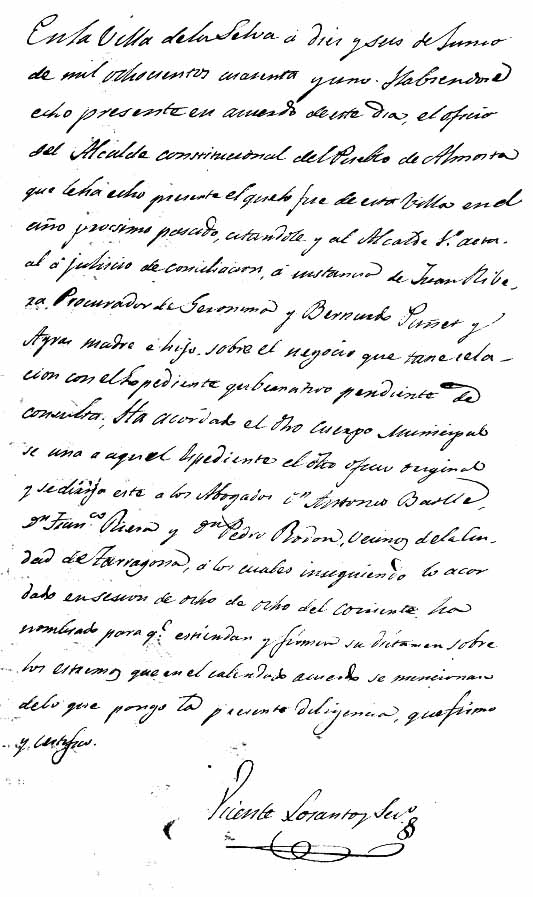 En la Villa de la Selva á diez y seis de Junio
de mil ochocientos cuarenta y uno. Habiendose
echo presente en acuerdo de este dia, el oficio
del Alcalde constitucional del Pueblo de Almosta
que le há echo presente el que lo fue de esta Villa en el
año procsimo pasado, citandole y al Alcalde
al á juhicio de conciliacion, á instancia de Juan Ribe,
ra Procurador de Geronima y Bernardo Puñet y
madre é hijo sobre el negocio que tane rela-
cion con el Espediente gubernativo pendiente de
consulta; Ha acordado el dho cuerpo Municipal
se una a aquel Espediente el dho oficio original
y se dirija este a los Abogados Dn Antonio Batlle,
Dn Franco Riera y Dn Pedro Rodon, vecinos de la Ciu-
dad de Tarragona, á los cuales insiguiendo lo acor
dado en sesion de ocho de ocho del corriente ha
nombrado para qe estiendan y firmen su dictamen sobre
los estremos que en el calendado acuerdo se mencionan
de lo que pongo la presente diligencia, que firmo
y certifico.
Vicente Losantos Serio